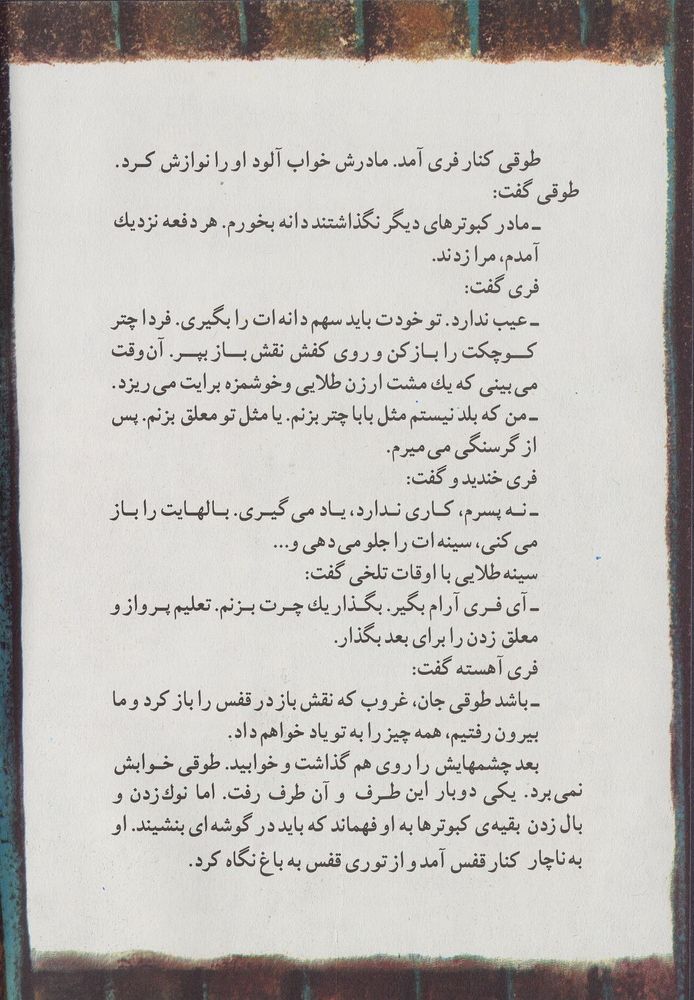 طوقی کنار فری آمد. مادرش خواب آلود او را نوازش کرد.
طوقی گفت:
ـ مادر کبوترهای دیگر نگذاشتند دانه بخورم. هر دفعه نزدیك
آمدم، مرا زدند.
فری گفت:
ـ عیب ندارد. تو خودت باید سهم دانه‌ات را بگیری. فردا چتر
کوچکت را باز کن و روی کفش نقش باز بپر. آن وقت
می‌بینی که یك مشت ارزن طلایی و خوشمزه برایت می‌ریزد.
ـ من که بلد نیستم مثل بابا چتر بزنم. یا مثل تو معلق بزنم. پس
از گرسنگی می‌میرم.
فری خندید و گفت:
ـ نه پسرم، کاری ندارد، یاد می‌گیری. بالهایت را باز
می‌کنی، سینه‌ات را جلو می‌دهی و...
سینه طلایی با اوقات تلخی گفت:
ـ آی فری آرام بگیر. بگذار یك چرت بزنم. تعلیم پرواز و
معلق زدن را برای بعد بگذار.
فری آهسته گفت:
ـ باشد طوقی جان، غروب که نقش باز در قفس را باز کرد و ما
بیرون رفتیم، همه چیز را به تو یاد خواهم داد.
بعد چشمهایش را روی هم گذاشت و خوابید. طوقی خوابش
نمی‌برد. یکی دوبار این طرف و آن طرف رفت. اما نوك زدن و
بال زدن بقیه‌ی کبوترها به او فهماند که باید در گوشه‌ای بنشیند. او
به ناچار کنار قفس آمد و از توری قفس به باغ نگاه کرد.